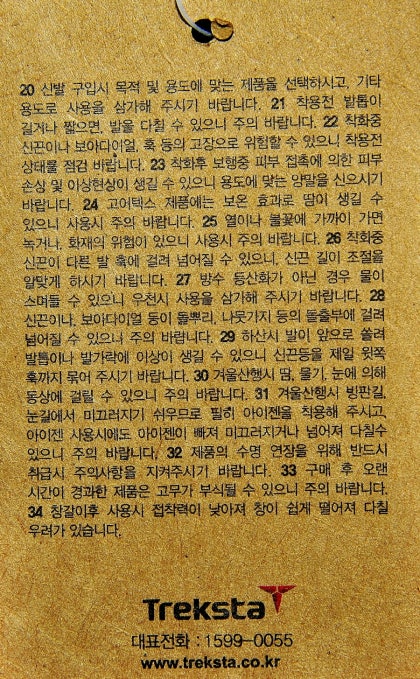 20 신발 구입시 목적 및 용도에 맞는 제품을 선택하시고, 기타
용도로 사용을 삼가해 주시기 바랍니다. 21 착용전 발톱이
길거나 짧으면, 발을 다칠 수 있으니 주의 바랍니다. 22 착화중
신끈이나 보아다이얼, 훅 등의 고장으로 위험할 수 있으니 착용전
상태를 점검 바랍니다. 23 착화후 보행중 피부 접촉에 의한 피부
손상 및 이상현상이 생길 수 있으니 용도에 맞는 양말을 신으시기
바랍니다. 24 고어텍스 제품에는 보온 효과로 땀이 생길 수
있으니 사용시 주의 바랍니다. 25 열이나 불꽃에 가까이 가면
녹거나, 화재의 위협이 있으니 사용시 주의 바랍니다. 26 착화중
신끈이 다른 발 훅에 걸려 넘어질 수 있으니, 신끈 길이 조절을
알맞게 하시기 바랍니다. 27 방수 등산화가 아닌 경우 물이
스며들 수 있으니 우천시 사용을 삼가해 주시기 바랍니다. 28
신끈이나, 보아다이얼 등이 돌뿌리, 나뭇가지 등의 돌출부에 걸려
넘어질 수 있으니 주의 바랍니다. 29 하산시 발이 앞으로 쏠려
발톱이나 발가락에 이상이 생길 수 있으니 신끈등을 제일 윗쪽
훅까지 묶어 주시기 바랍니다. 30 겨울산행시 땀, 물기, 눈에 의해
동상에 걸릴 수 있으니 주의 바랍니다. 31 겨울산행시 빙판길,
눈길에서 미끄러지기 쉬우므로 필히 아이젠을 착용해 주시고,
아이젠 사용시에도 아이젠이 빠져 미끄러지거나 넘어져 다칠수
있으니 주의 바랍니다. 32 제품의 수명 연장을 위해 반드시
취급시 주의사항을 지켜주시기 바랍니다. 33 구매 후 오랜
시간이 경과한 제품은 고무가 부식될 수 있으니 주의 바랍니다.
34 창갈이후 사용시 접착력이 낮아져 창이 쉽게 떨어져 다칠
우려가 있습니다.
Treksta
대표전화 : 1599-0055
www.treksta.co.kr